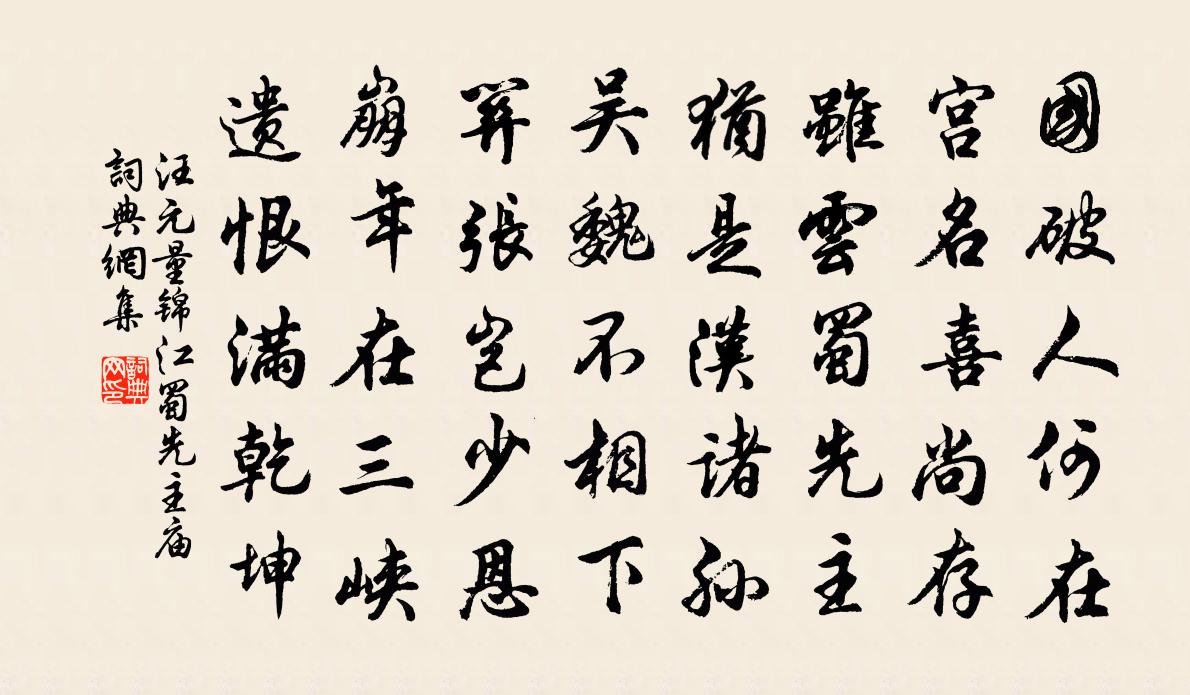 國破人何在
宮名喜尚存
雖雲蜀先主
猶是漢諸孫
吳魏不相下
關張豈少恩
崩年在三峽
遺恨滿乾坤
汪元量錦江蜀先主庙
詞典網集
詞典网印